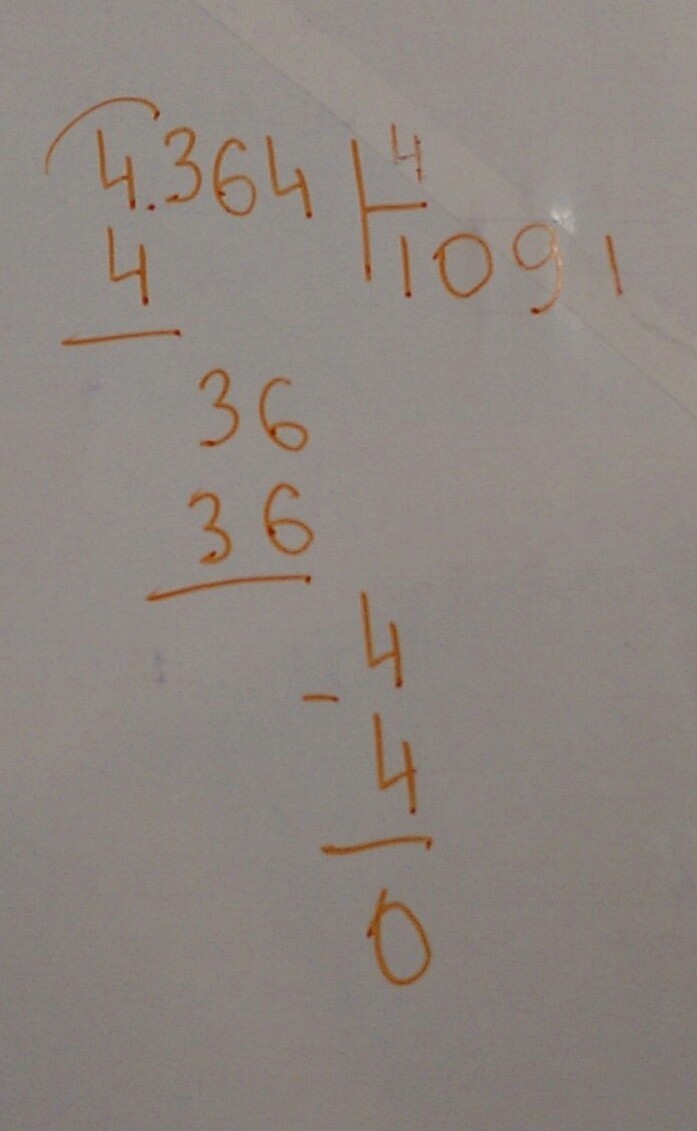 4.364 4
4 1091
36
36
- 4
4
0